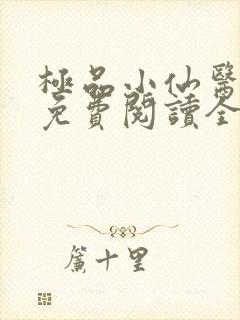 極品小仙醫
免費閱讀全
簾十里